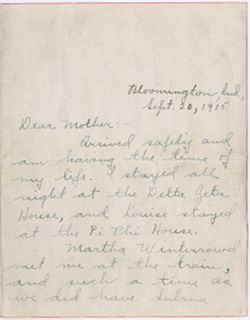 Bloomington, Ind.
Sept. 20, 1915.
Dear Mother:-
Arrived safely and
am having the time of
my life. I stayed all
night at the Delta Zeta
House, and Louise stayed
at the Pi Phi House.
Martha Winterrowd
met me at the train,
and such a time as
we did have